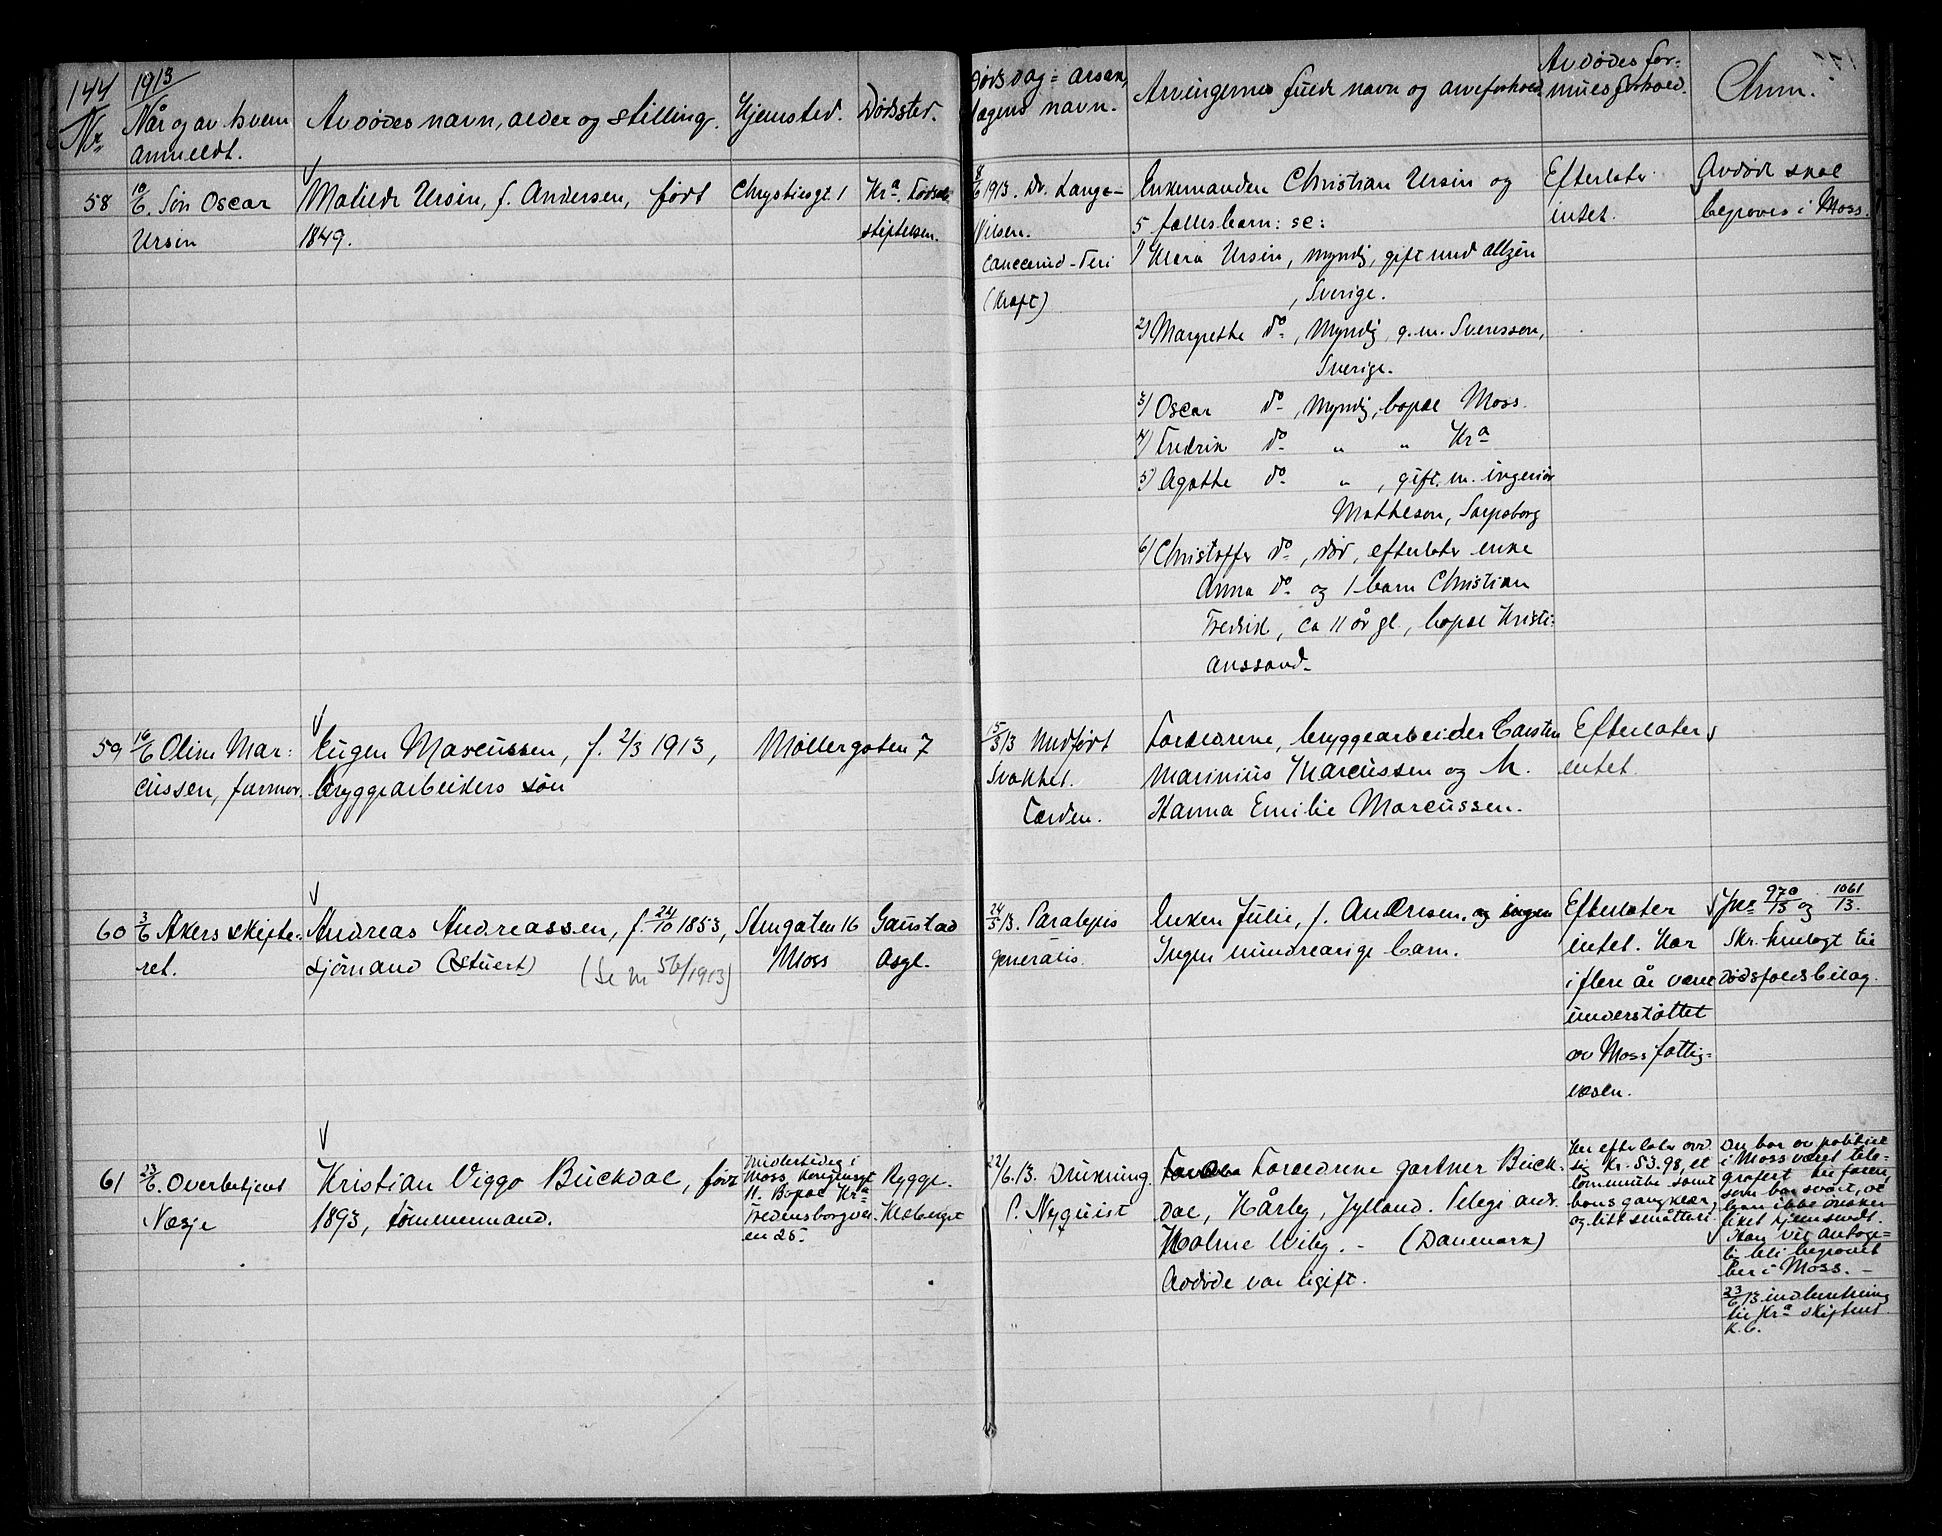 144
1913
Nr
Når og av hvem
anmeldt.
Avdødes navn, alder og stilling.
Hjemsted.
Dødssted.
Dødsdag = årsak,
lægens navn.
Arvingernes fulde navn og arveforhold
Avdødes for-
muesforhold.
Anm.
58
10/6. Søn Oscar
Ursin
Matilde Ursin, f. Andersen, født
1849.
Chrystiesgt. 1
Kra. Fødsels
stiftelsen.
8/6 1913. Dr. Lange-
Nilsen.
(Kræft)
Enkemanden Christian Ursin og
5 fællesbarn: se:
1) Mara Ursin, myndig, gift med Alzén
, Sverige.
2) Margrethe do, myndig, g. m. Svensson,
Sverige.
3) Oscar do, myndig, bopæl Moss.
4) Fredrik do " " Kra
5) Agathe do " , gift. m. ingeniør
Matheson, Sarpsborg
6) Christoffer do, død, efterlater enke
Anna do og 1 barn Christian
Fredrik, ca 11 år gl., bopæl Kristi-
anssand.
Efterlater
intet.
Avdøde skal
begraves i Moss.
59
16/6 Oline Mar-
cussen, farmor.
Eugen Marcussen, f. 2/3 1913,
bryggearbeiders søn
Møllergaten 7
15/3 13 Medfødt
Svakhet.
Færden.
Forældrene, bryggearbeider Carsten
Marinius Marcussen og h.
Hanna Emilie Marcussen.
Efterlater
intet.
60
3/6 Akers skifte-
ret.
Andreas Andreassen, f. 24/10 1853,
sjømand (stuert) (Se nr 56/1913)
Stengaten 16
Moss
Gaustad
Asyl.
24/5 13. Paralysis
generalis.
Enken Julie, f. Andresen. og ingen
Ingen mindreårige barn.
Efterlater
intet. Har
i flere år været
understøttet
av Moss fattig-
væsen.
Jnr 970/13 og 1061/13.
Skr. henlagt til
dødsfaldsbilag.
61
23/6. Overbetjent
Næsje
Kristian Viggo Buckdal, født
1893, tømmermand.
Midlertidig i
Moss Kongensgt
11. Bopæl Kra
Fredensborgvei-
en 25.
Rygge.
22/6.13. Drukning.
P. Nyquist
Forældrene gartner Buck-
dal, Hårby, Jylland. Telegr. adr.
Holme Wiby. - (Danemark)
Avdøde var ugift.
Her efterlater avd
sig kr. 53.98, et
lommeuhr samt
hans gangklær,
og litt småtteri
Der har av politiet
i Moss været tele-
grafert til faren,
som har svart, at
han ikke ønsker
liket hjemsendt.
Han vil antage-
lig bli begravet
her i Moss. -
23/6 13 indberetning
til Kra skifteret
K.G.